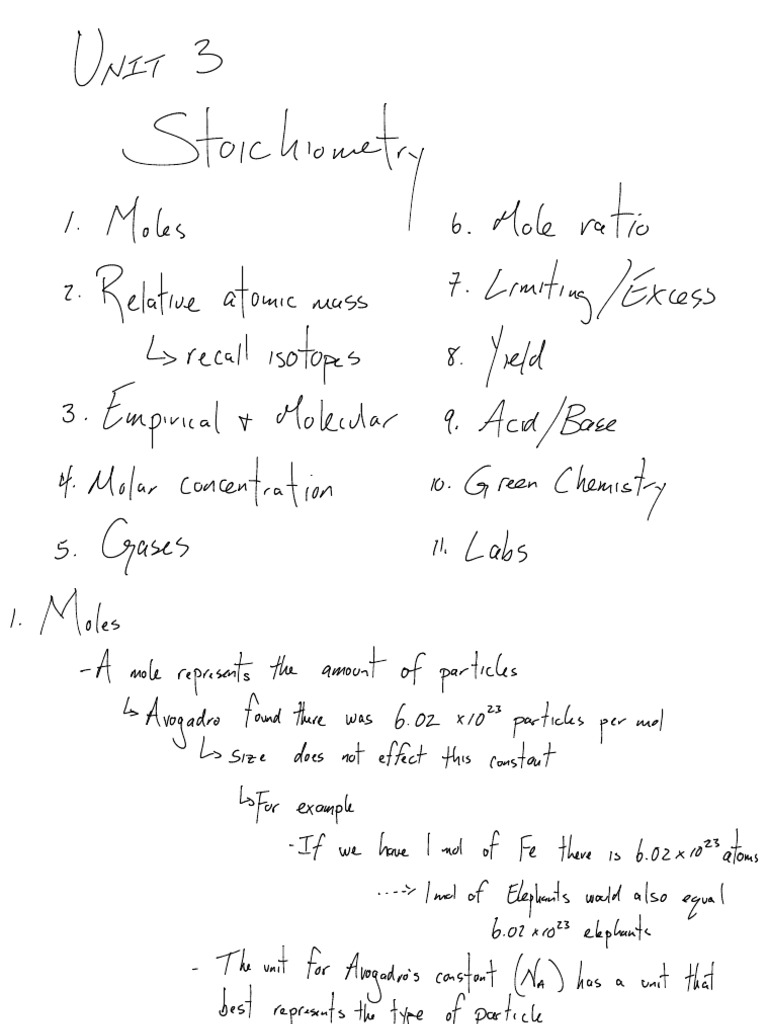 UNIT 3
Stoichiometry
1. Moles
2. Relative atomic mass
↳ recall isotopes
3. Empirical + Molecular
4. Molar concentration
5. Gases
6. Mole ratio
7. Limiting/Excess
8. Yield
9. Acid/Base
10. Green Chemistry
11. Labs
1. Moles
- A mole represents the amount of particles
↳ Avogadro found there was 6.02 x10²³ particles per mol
↳ size does not effect this constant
↳ For example
- If we have 1 mol of Fe there is 6.02 x 10²³ atoms
----> 1 mol of Elephants would also equal
6.02 x10²³ elephants
- The unit for Avogadro's constant (Nᴀ) has a unit that
best represents the type of particle